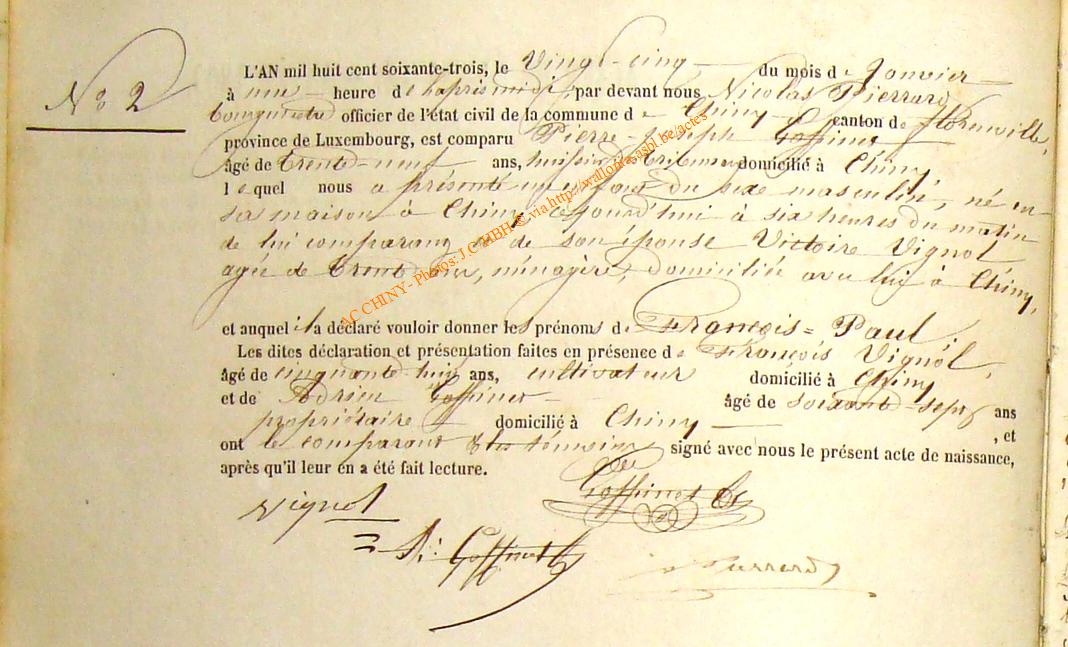 N° 2
L'AN mil huit cent soixante-trois, le Vingt-cinq du mois de Janvier
à une heure de l'aprés midi, par devant nous Nicolas Pierrard
Bourgmestre officier de l'état civil de la commune de Chiny canton de Florenville,
province de Luxembourg, est comparu Pierre-Joseph Goffinet
âgé de trente-neuf ans, huissier de tribunaux domicilié à Chiny,
lequel nous a présenté un enfant du sexe masculin, né en
sa maison à Chiny cejourd'hui à six heures du matin
de lui comparant et de son épouse Victoire Vignol
agée de trente ans, ménagère, domiciliée avec lui à Chiny,
et auquel il a déclaré vouloir donner les prénoms de François=Paul.
Les dites déclaration et présentation faites en présence de François Vignol,
âgé de cinquante huit ans, cultivateur domicilié à Chiny
et de Adrien Goffinet âgé de soixante-sept ans
propriétaire domicilié à Chiny, et
ont le comparant & les témoins signé avec nous le présent acte de naissance,
après qu'il leur en a été fait lecture.
Vignol
Goffinet
A: Goffinet
Pierrard
AC CHINY - Photos: J.C MBH © via http://wallonia.asbl.be/actes